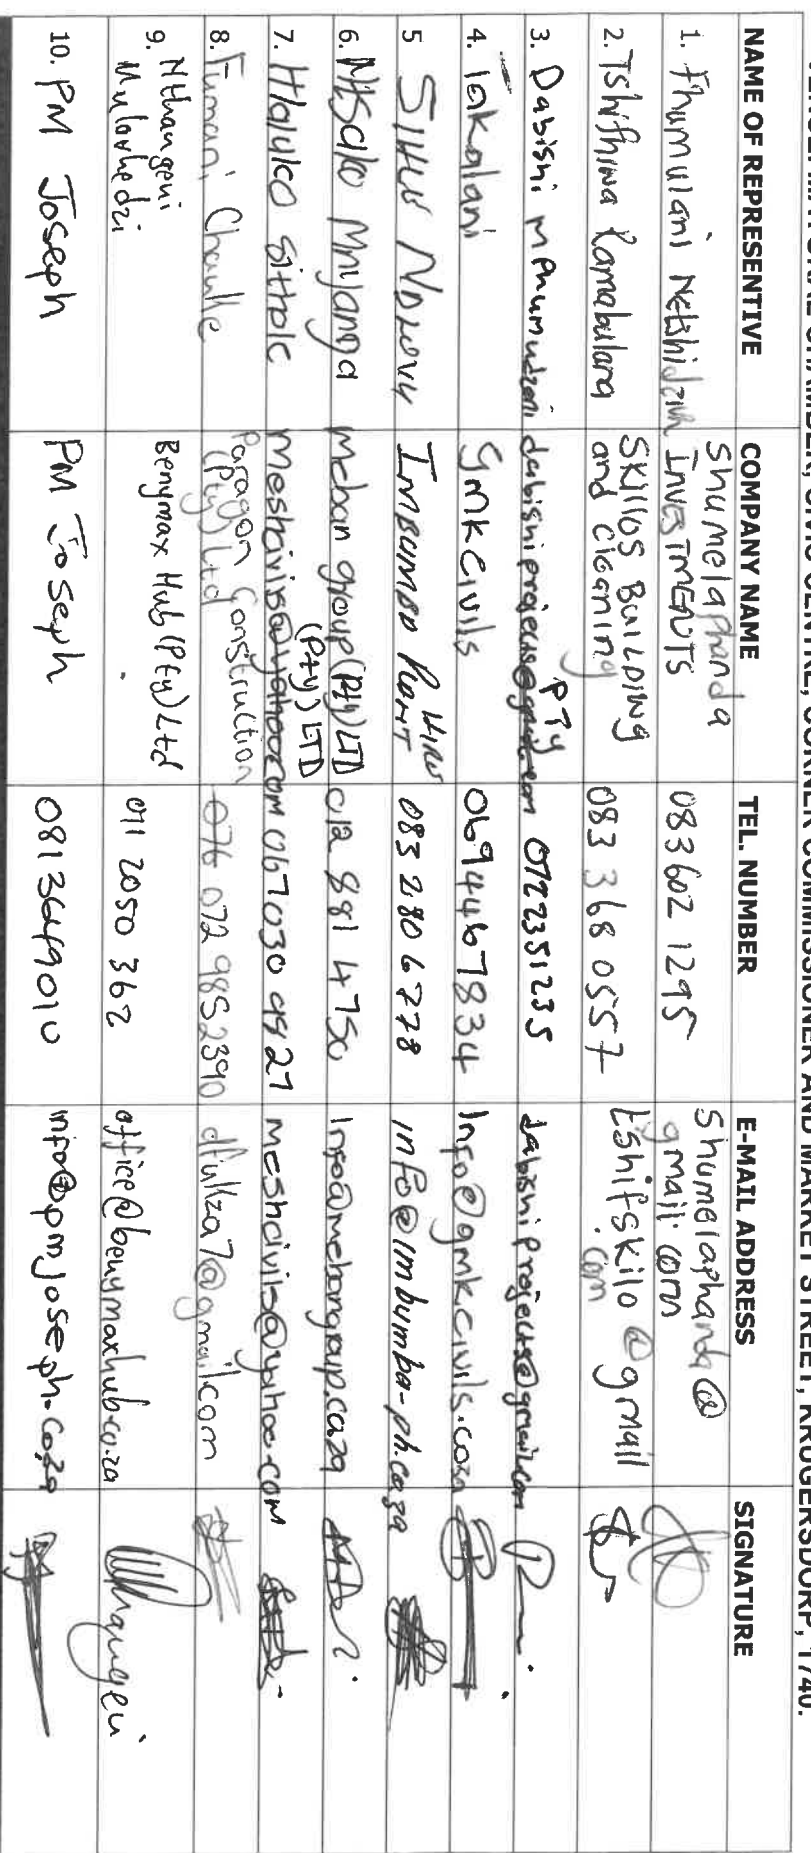 CHAMBER, CIVIC CENTRE, CORNER COMMISSIONER AND MARKET STREET, KRUGERSDORP, 1740.
NAME OF REPRESENTIVE COMPANY NAME TEL. NUMBER E-MAIL ADDRESS SIGNATURE
Shumelaphanda Shumelaphanda @
1. Fhumulani INVESTMENTS 083 602 1295 gmail.com
2. Tshifhiwa Ramabulana SKILLOS BUILDING 083 368 0557 tshifskilo @ gmail
and cleaning .com
PTY
3. Dabishi Mphumudzeni dabishiprojects@gmail.com 0722351235 dabishiprojects@gmail.com
4. Takalani GMK civils 0694467834 Info@gmkcivils.co.za
5 SIHLE NDLOVU IMBUMBA PLANT HIRE 083 280 6778 info@imbumba-ph.co.za
6. Ntsako Mnyanga Meban group (Pty) LTD 012 881 4750
(Pty) LTD
7. Hlayiko Sithole meshcivils@yahoo.com 067 030 9827 meshcivils@yahoo.com
8. Fumani Chauke Paragon Construction 076 072 9852390 dfulza7@gmail.com
(Pty) Ltd
9. Nthangeni Benymax Hub (Pty) Ltd 011 2050 362 office@benymaxhub.co.za
Mulovhedzi
10. PM Joseph PM Joseph 0813649010 info@pmjoseph.co.za